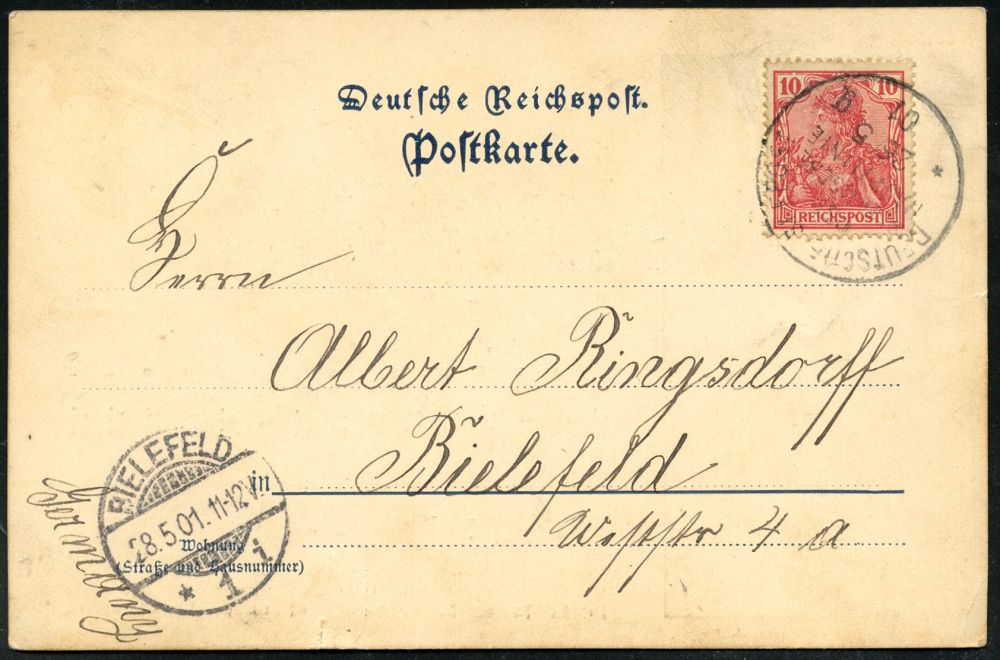 Deutsche Reichspost.
Postkarte.
10 10
REICHSPOST
Herrn
Albert Ringsdorff
in Bielefeld
Weststr 4 a.
Wohnung
(Straße und Hausnummer)
BIELEFELD
28.5.01. 11-12 V.
* 1 i
Germany